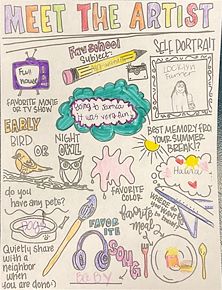 MEET THE ARTIST
Fav school
Subject-
SELF PORTRAIT
Full
house
FAVORITE MOVIE
OR TV SHOW
Going to Jamica
It was very fun
EARLY
BIRD
OR
NIGHT
OWL
BEST MEMORY FROM
YOUR SUMMER
BREAK?
do you
have any pets?
FAVORITE
COLOR
WHERE DO
YOU WANT TO
favorite
meal
FAVOR
ITE
SONG
Quietly share
with a
neighbor
when
you are done :)
BABY